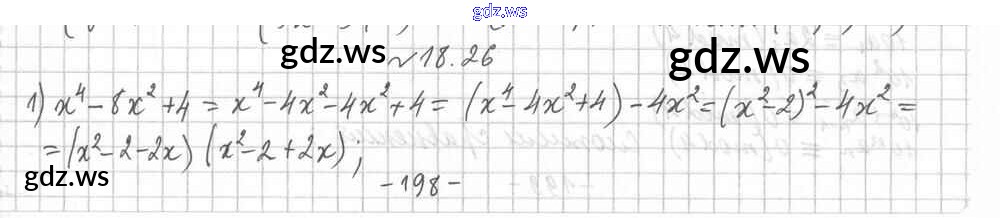 gdz.ws
gdz.ws № 18.26 gdz.ws
1) x⁴ - 8x² + 4 = x⁴ - 4x² - 4x² + 4 = (x⁴ - 4x² + 4) - 4x² = (x² - 2)² - 4x² =
= (x² - 2 - 2x) (x² - 2 + 2x);
gdz.ws
- 198 -